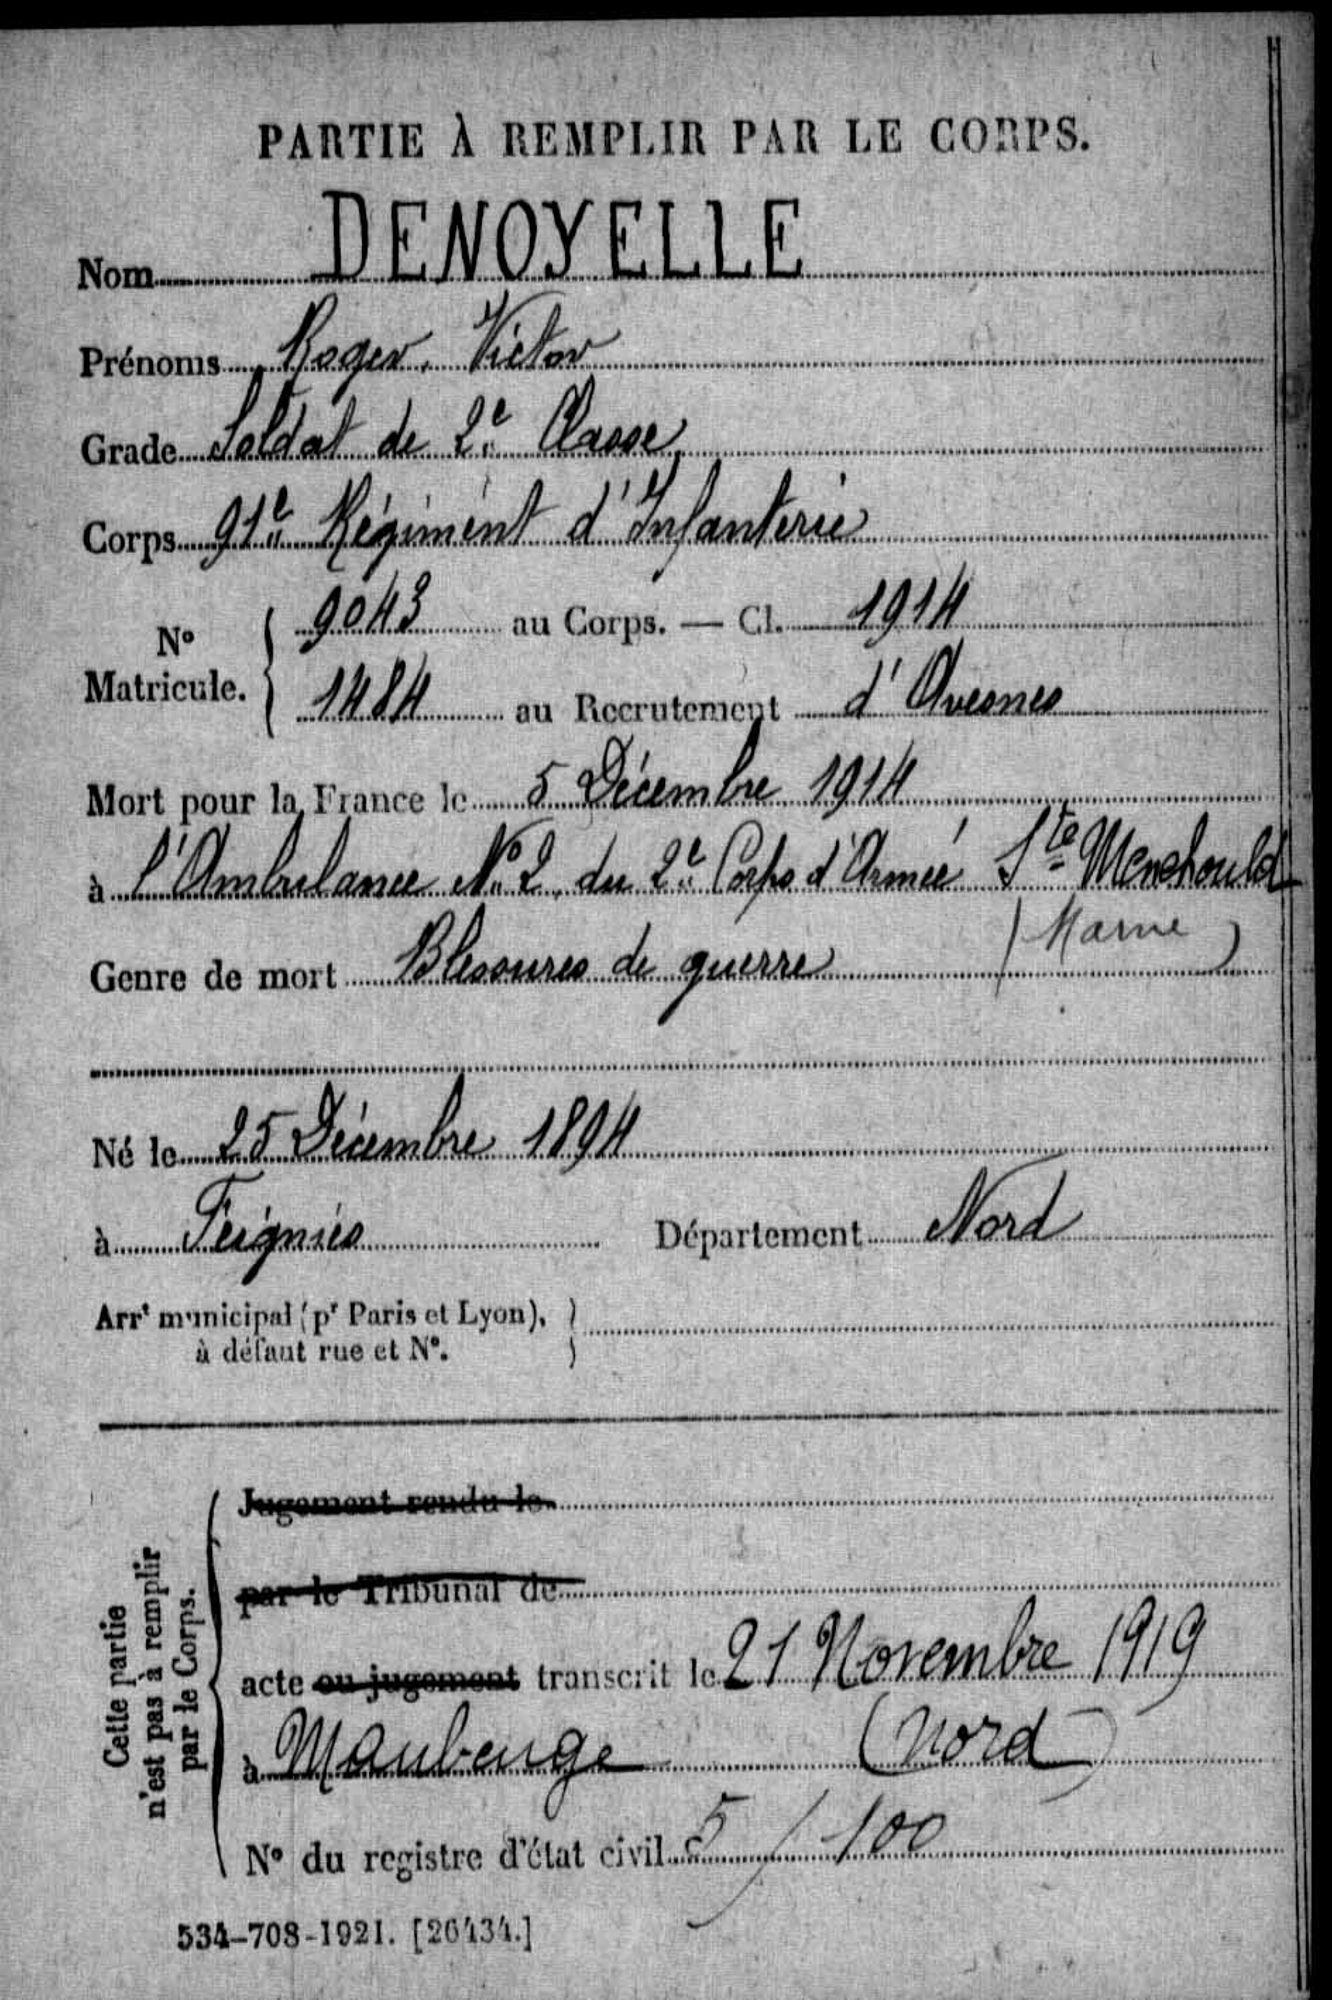 PARTIE À REMPLIR PAR LE CORPS.
Nom DENOYELLE
Prénoms Roger, Victor
Grade Soldat de 2e Classe
Corps 91e Régiment d'Infanterie
N° Matricule. { 9043 au Corps. — Cl. 1914
1484 au Recrutement d'Avesnes
Mort pour la France le 5 Décembre 1914
à l'Ambulance N° 2 du 2e Corps d'Armée Ste Menehould
(Marne)
Genre de mort Blessures de guerre
Né le 25 Décembre 1894
à Feignies Département Nord
Arrt municipal (pr Paris et Lyon), }
à défaut rue et N°.
Cette partie
n'est pas à remplir
par le Corps.
Jugement rendu le
par le Tribunal de
acte ou jugement transcrit le 21 Novembre 1919
à Maubeuge (Nord)
N° du registre d'état civil 5 / 100
534-708-1921. [26434.]